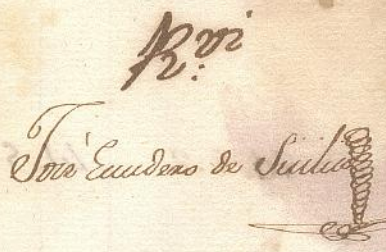 R.vi
José Escudero de Sicilia